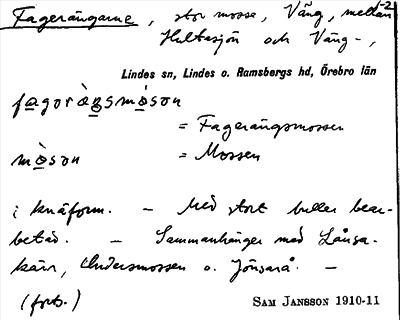 Fagerängarne, stor mosse, Väng, mellan -2-
Hultasjön och Väng-,
Lindes sn, Lindes o. Ramsbergs hd, Örebro län
fagoràŋsmòson
= Fagerängsmossen
mòson = Mossen
i knäform. – Med stort buller bear-
betad. – Sammanhänger med Långa-
kärr, Undersmossen o. Jönsarå. –
(forts.) SAM JANSSON 1910-11